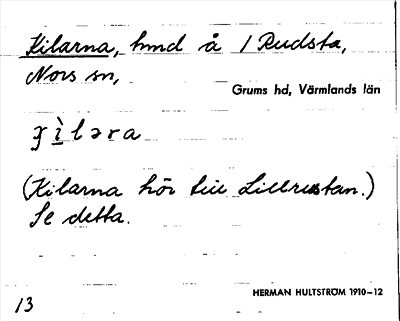 Kilarna, hmd å 1 Rudsta,
Nors sn,
Grums hd, Värmlands län
(Kilarna hör till Lillrustan.)
Se detta.
HERMAN HULTSTRÖM 1910-12
13